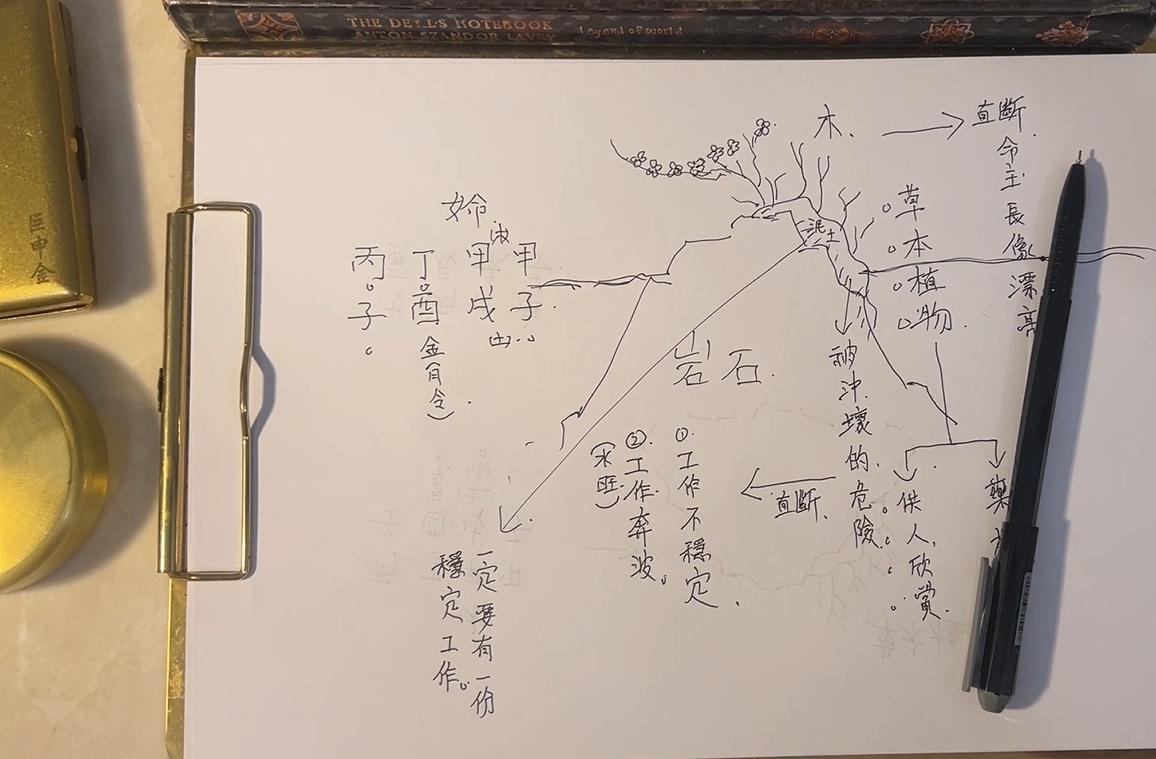 THE DEVIL'S NOTEBOOK
ANTON SZANDOR LAVEY
Legend of world
巨申金
木、
直斷
命主長像漂亮
草本植物
泥土
女命
甲子
甲戌
丁酉
丙子
岩石
被沖壞的危險
直斷
①工作不穩定
②工作奔波。
(水旺)
供人欣賞
藥
一定要有一份
穩定工作。